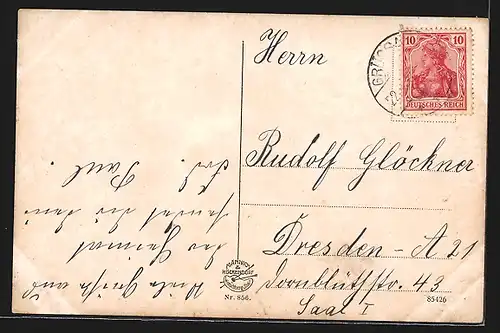 Herrn
10 10
DEUTSCHES REICH
22.
Rudolf Glöckner
Dresden-A 21
Dornblüthstr. 43
Saal I
Viele Grüße
der Heimat
sendet dir dein
Paul.
Nr. 856.
85426